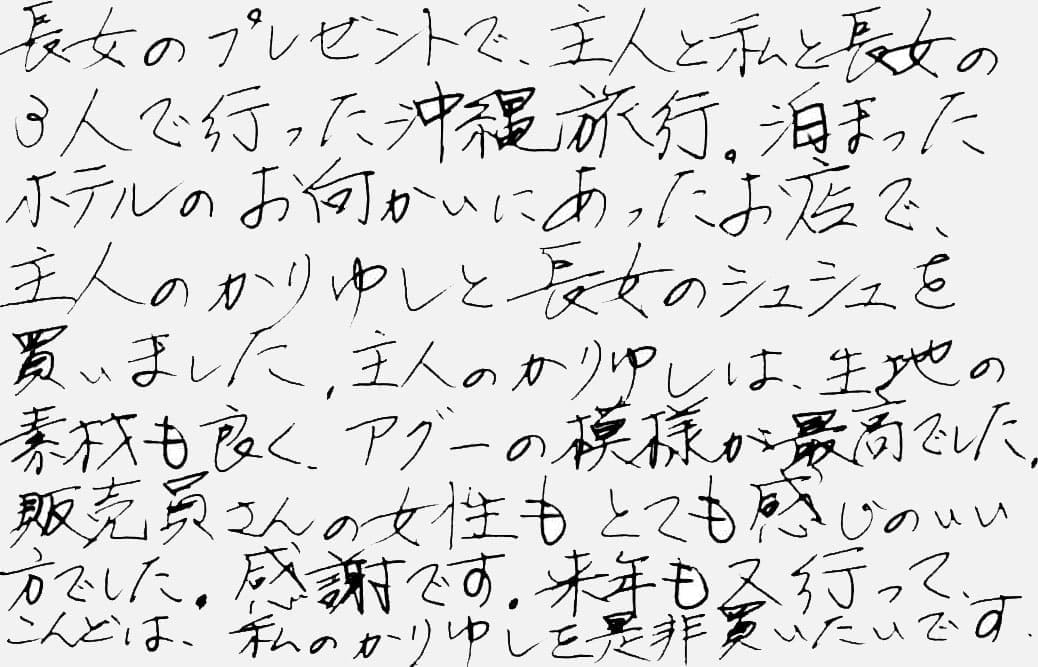 長女のプレゼントで、主人と私と長女の
3人で行った沖縄旅行。泊まった
ホテルのお向かいにあったお店で、
主人のかりゆしと長女のシュシュを
買いました。主人のかりゆしは、生地の
素材も良く、アグーの模様が最高でした。
販売員さんの女性もとても感じのいい
方でした。感謝です。来年も又行って、
こんどは、私のかりゆしを是非買いたいです。